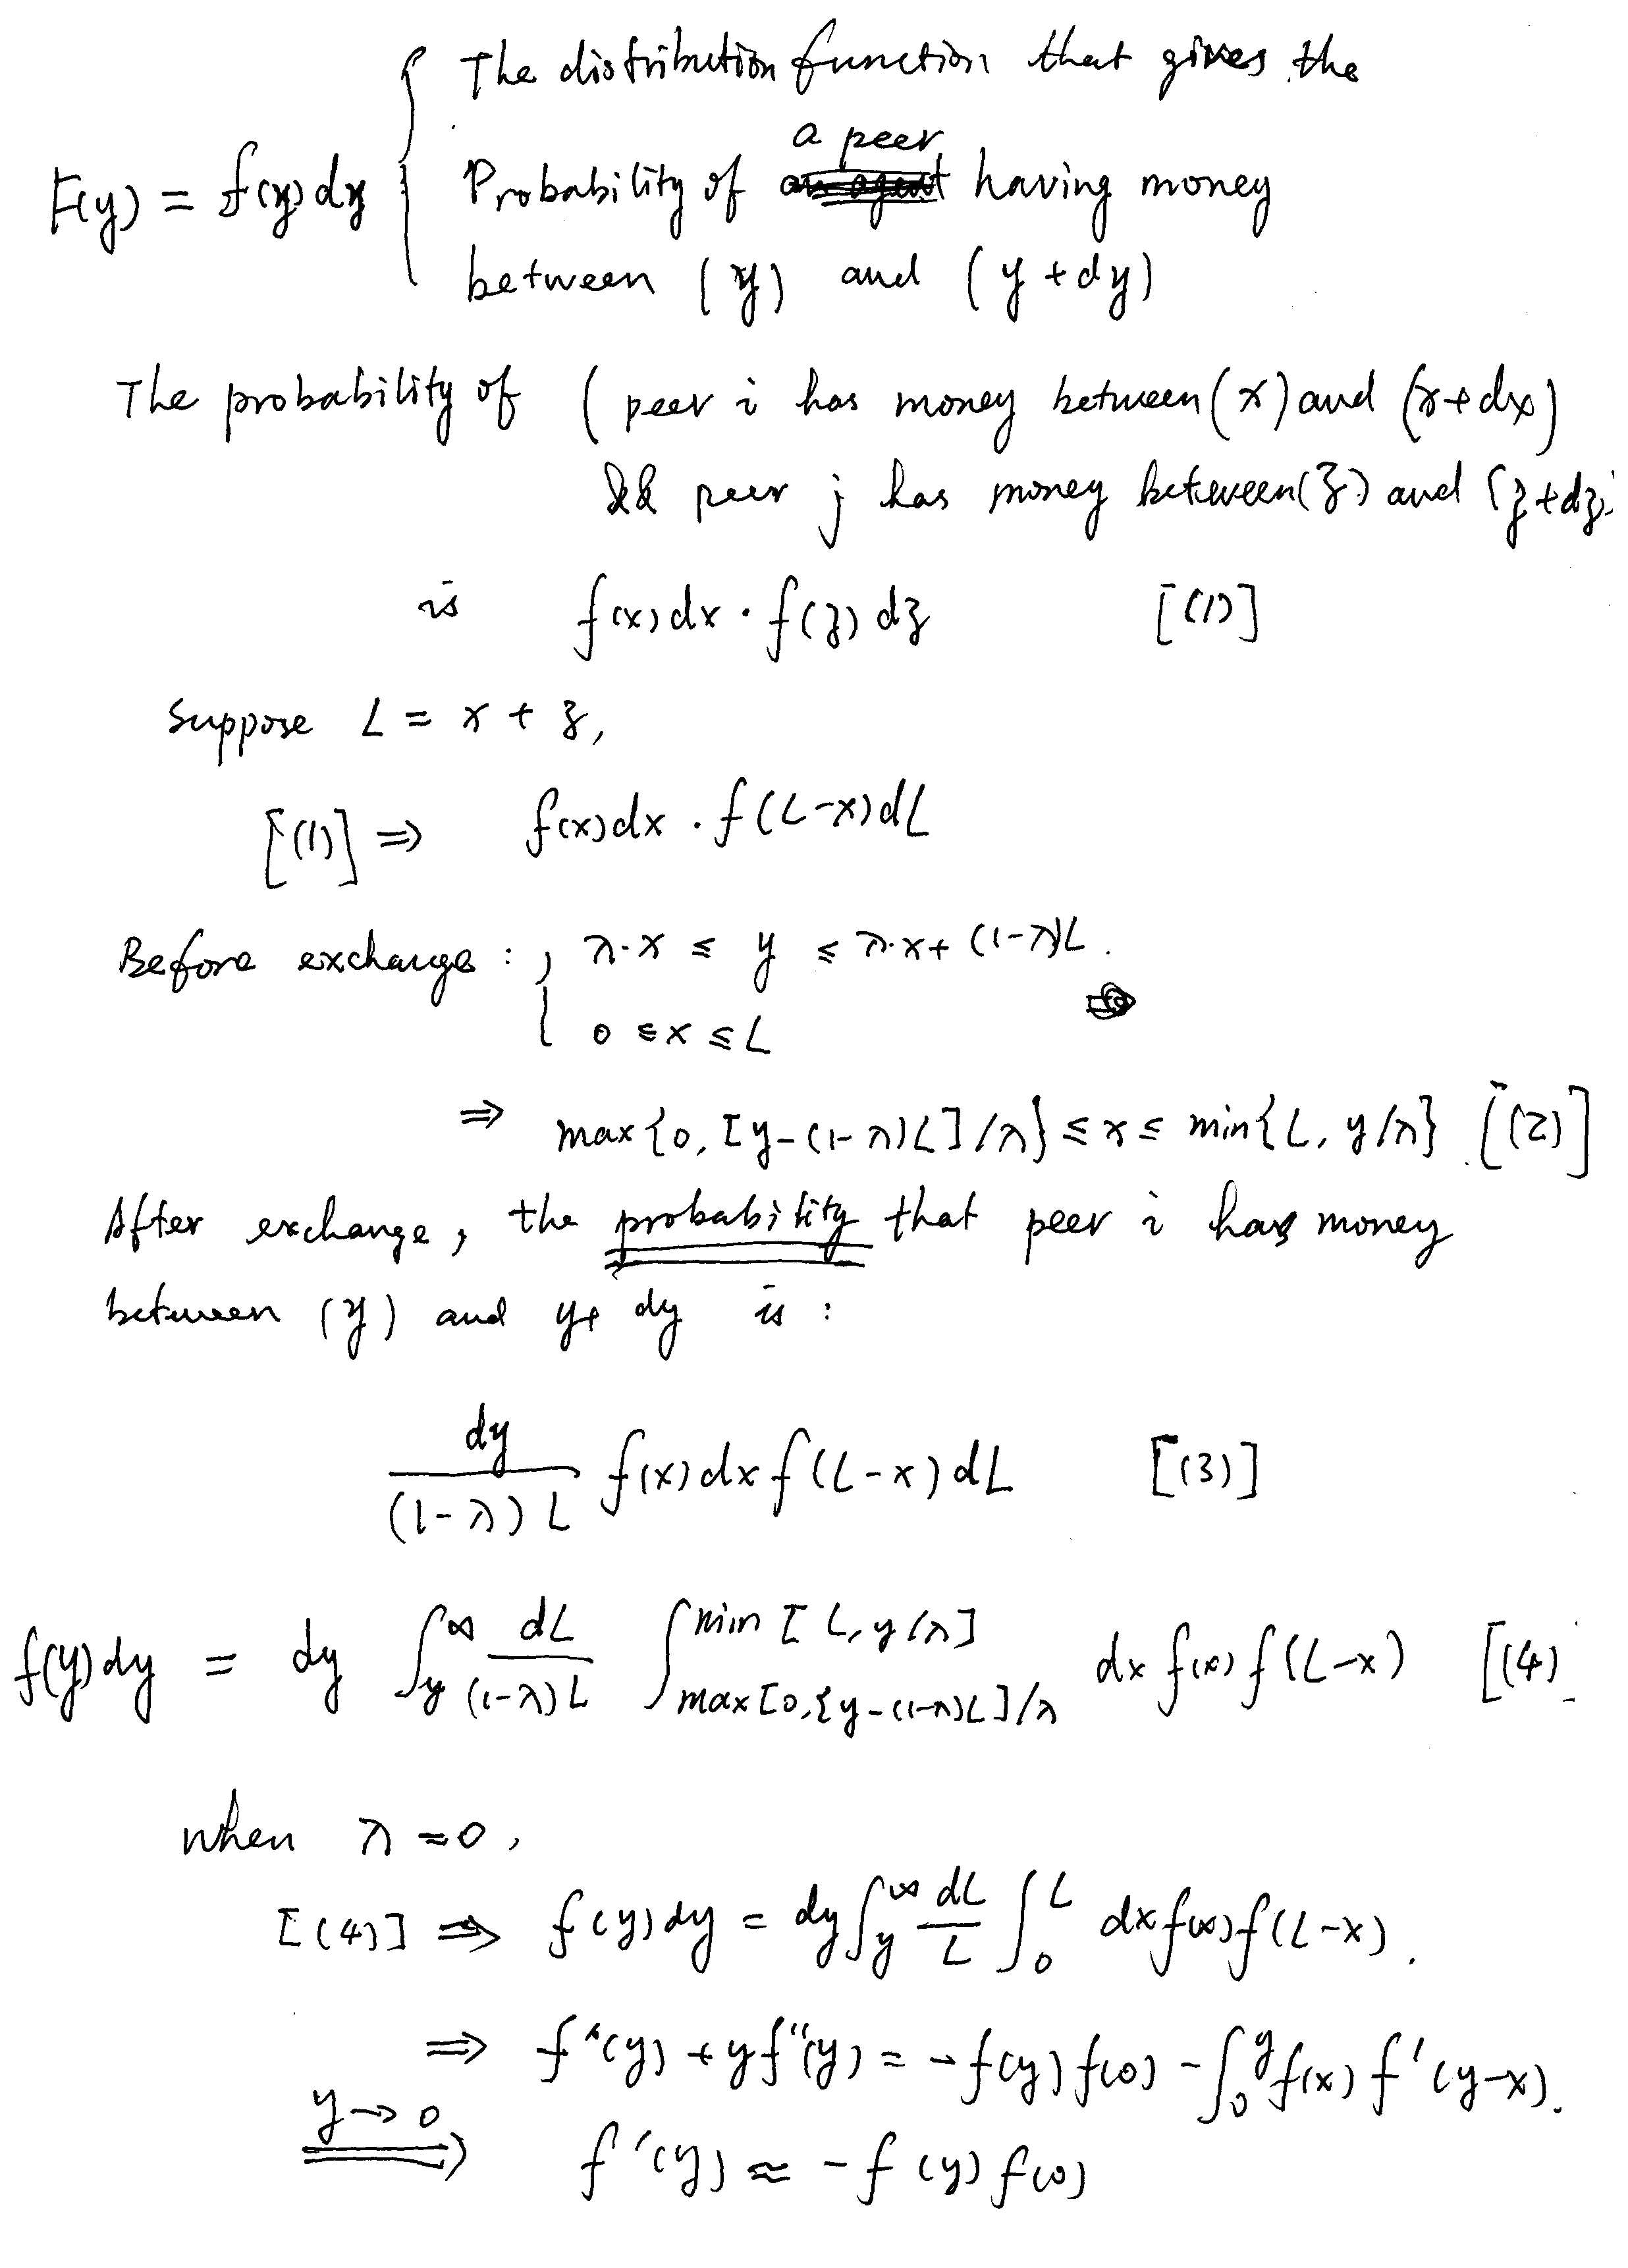 The distribution function that gives the
a peer
F(y) = f(y)dy { Probability of an agent having money
between (y) and (y+dy)
The probability of ( peer i has money between (x) and (x+dx)
&& peer j has money between (z) and (z+dz)
is f(x)dx · f(z)dz [(1)]
Suppose L = x + z,
[(1)] ⇒ f(x)dx . f(L-x)dL
Before exchange : { λ·x ≤ y ≤ λ·x + (1-λ)L .
0 ≤ x ≤ L
⇒ max{0, [y-(1-λ)L]/λ} ≤ x ≤ min{L, y/λ} . [(2)]
After exchange, the probability that peer i has money
between (y) and y+dy is :
dy / (1-λ)L f(x)dx f(L-x)dL [(3)]
f(y)dy = dy ∫_y^∞ dL/(1-λ)L ∫_{max[0,{y-(1-λ)L]/λ}^{min[L,y/λ]} dx f(x) f(L-x) [(4)
when λ = 0 ,
[(4)] ⇒ f(y)dy = dy ∫_y^∞ dL/L ∫_0^L dx f(x) f(L-x) .
⇒ f'(y) + y f''(y) = - f(y) f(0) - ∫_0^y f(x) f'(y-x) .
y→0 ⇒ f'(y) ≈ - f(y) f(0)